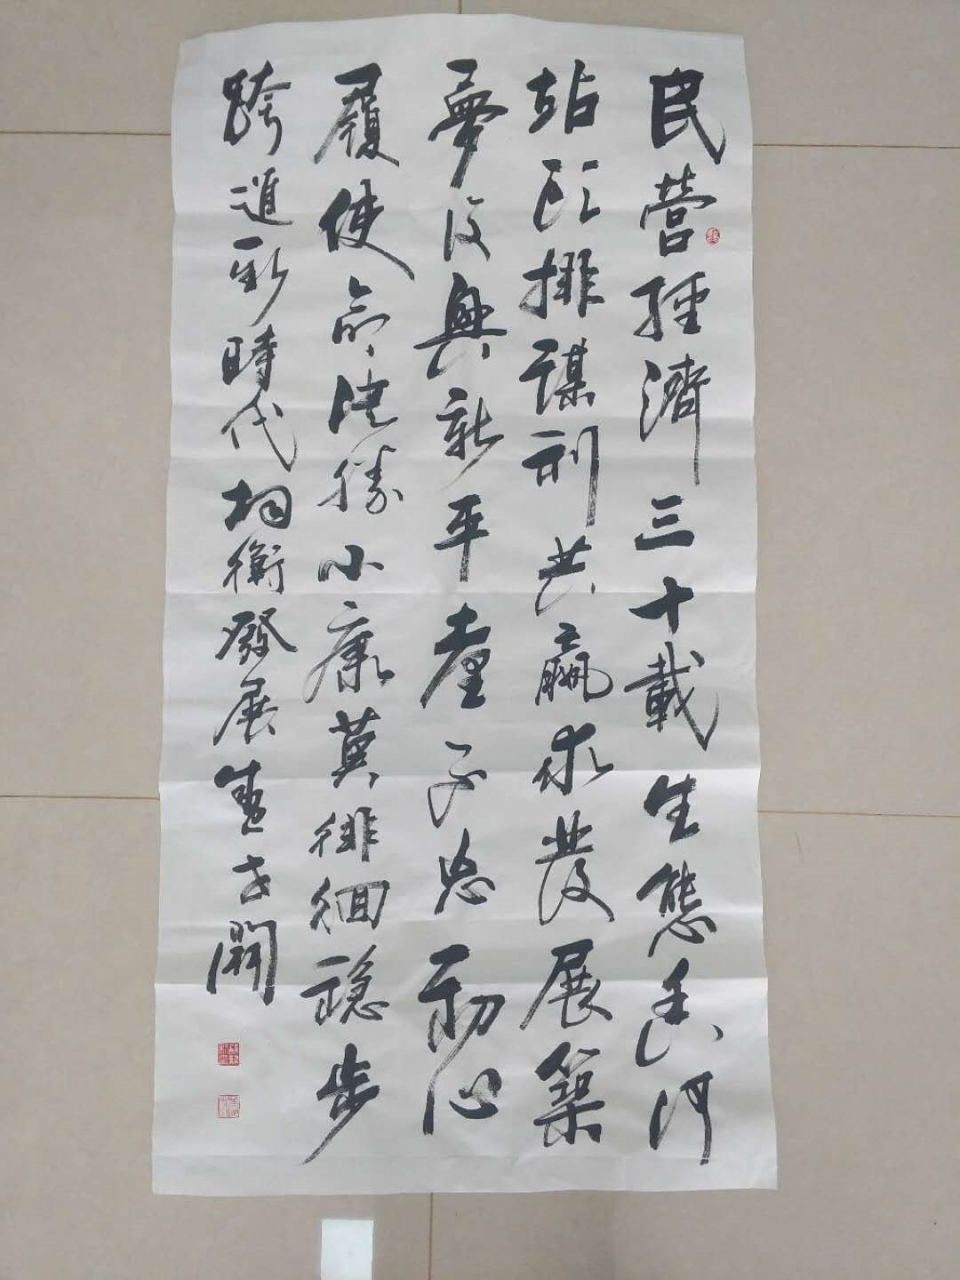 民营經濟三十載生態香河
站頭排謀利共贏求發展築
夢復興新平臺不忘初心
履使命決勝小康莫徘徊穩步
跨進新時代均衡發展開